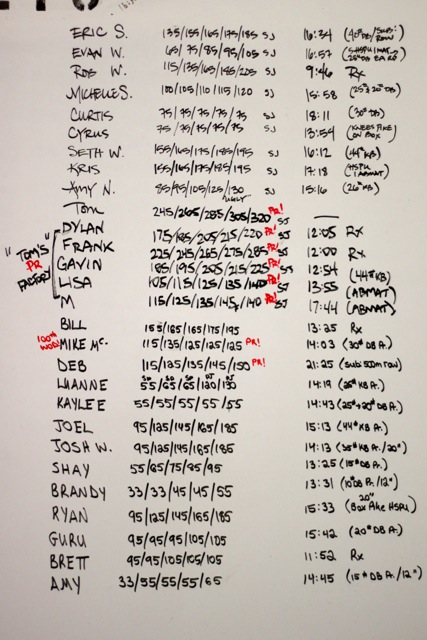 ERIC S. 135/155/165/175/185 SJ 16:34 (40# DB/SUB: ROW)
EVAN W. 65/75/85/95/105 SJ 16:57
ROB W. 115/135/165/185/205 SJ 9:46 Rx
MICHELLE S. 100/105/110/115/120 SJ 15:58 (25# 20# DB)
CURTIS 75/75/75/75/75 SJ 18:11 (30# DB)
CYRUS 75/75/75/75/75 SJ 13:54 (KNEES/PIKE ON BOX)
SETH W. 155/165/175/185/195 SJ 16:12 (44# KB)
KRIS 155/165/175/185/195 SJ 17:18 (HSPU 1 ABMAT)
AMY N. 85/95/105/125/130 SJ 15:16 (26# KB)
UGLY
TOM 245/265/285/305/320 PR! SJ —
"TOM'S PR FACTORY"
DYLAN 175/185/205/215/220 PR! SJ 12:05 Rx
FRANK 225/245/265/275/285 PR! SJ 12:00 Rx
GAVIN 185/195/205/215/225 PR! SJ 12:54 (44# KB)
LISA 105/115/125/135/140 PR! SJ 13:55 (ABMAT)
M 115/125/135/145/140 PR! SJ 17:44 (ABMAT)
BILL 155/165/165/175/195 13:25 Rx
100th WOD! MIKE Mc. 115/135/125/125/125 PR! 14:03 (30# DB A.)
DEB 115/125/135/145/150 PR! 21:25 (sub: 500m row)
LUANNE 55/65/65/120/130 14:19 (25# KB A.)
KAYLEE 55/55/55/55/55 14:43 (25# + 20# DB A.)
JOEL 95/125/145/165/185 15:13 (44# KB A.)
JOSH W. 95/125/145/165/185 14:13 (35# KB A./20")
SHAY 55/65/75/85/95 13:25 (15# DB A.)
BRANDY 33/33/45/45/55 13:31 (10# DB A./12")
RYAN 95/125/145/165/185 15:33 (20" Box Pike HSPU)
GURU 95/95/95/105/105 15:42 (20# DB A.)
BRETT 95/95/105/105/105 11:52 Rx
AMY 33/55/55/55/65 14:45 (15# DB A./12")